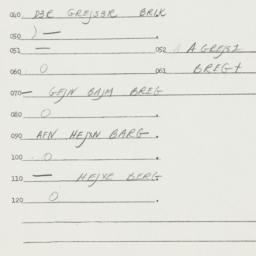 040 DER GREJSER BRLK
050 ) —
051 — 052 A GREJSI
060 O 061 BREG+
070 — GEJN BAJM BREG
080 O
090 AFN HEJXN BARG.
100 O
110 — HEJXE BERG
120 O